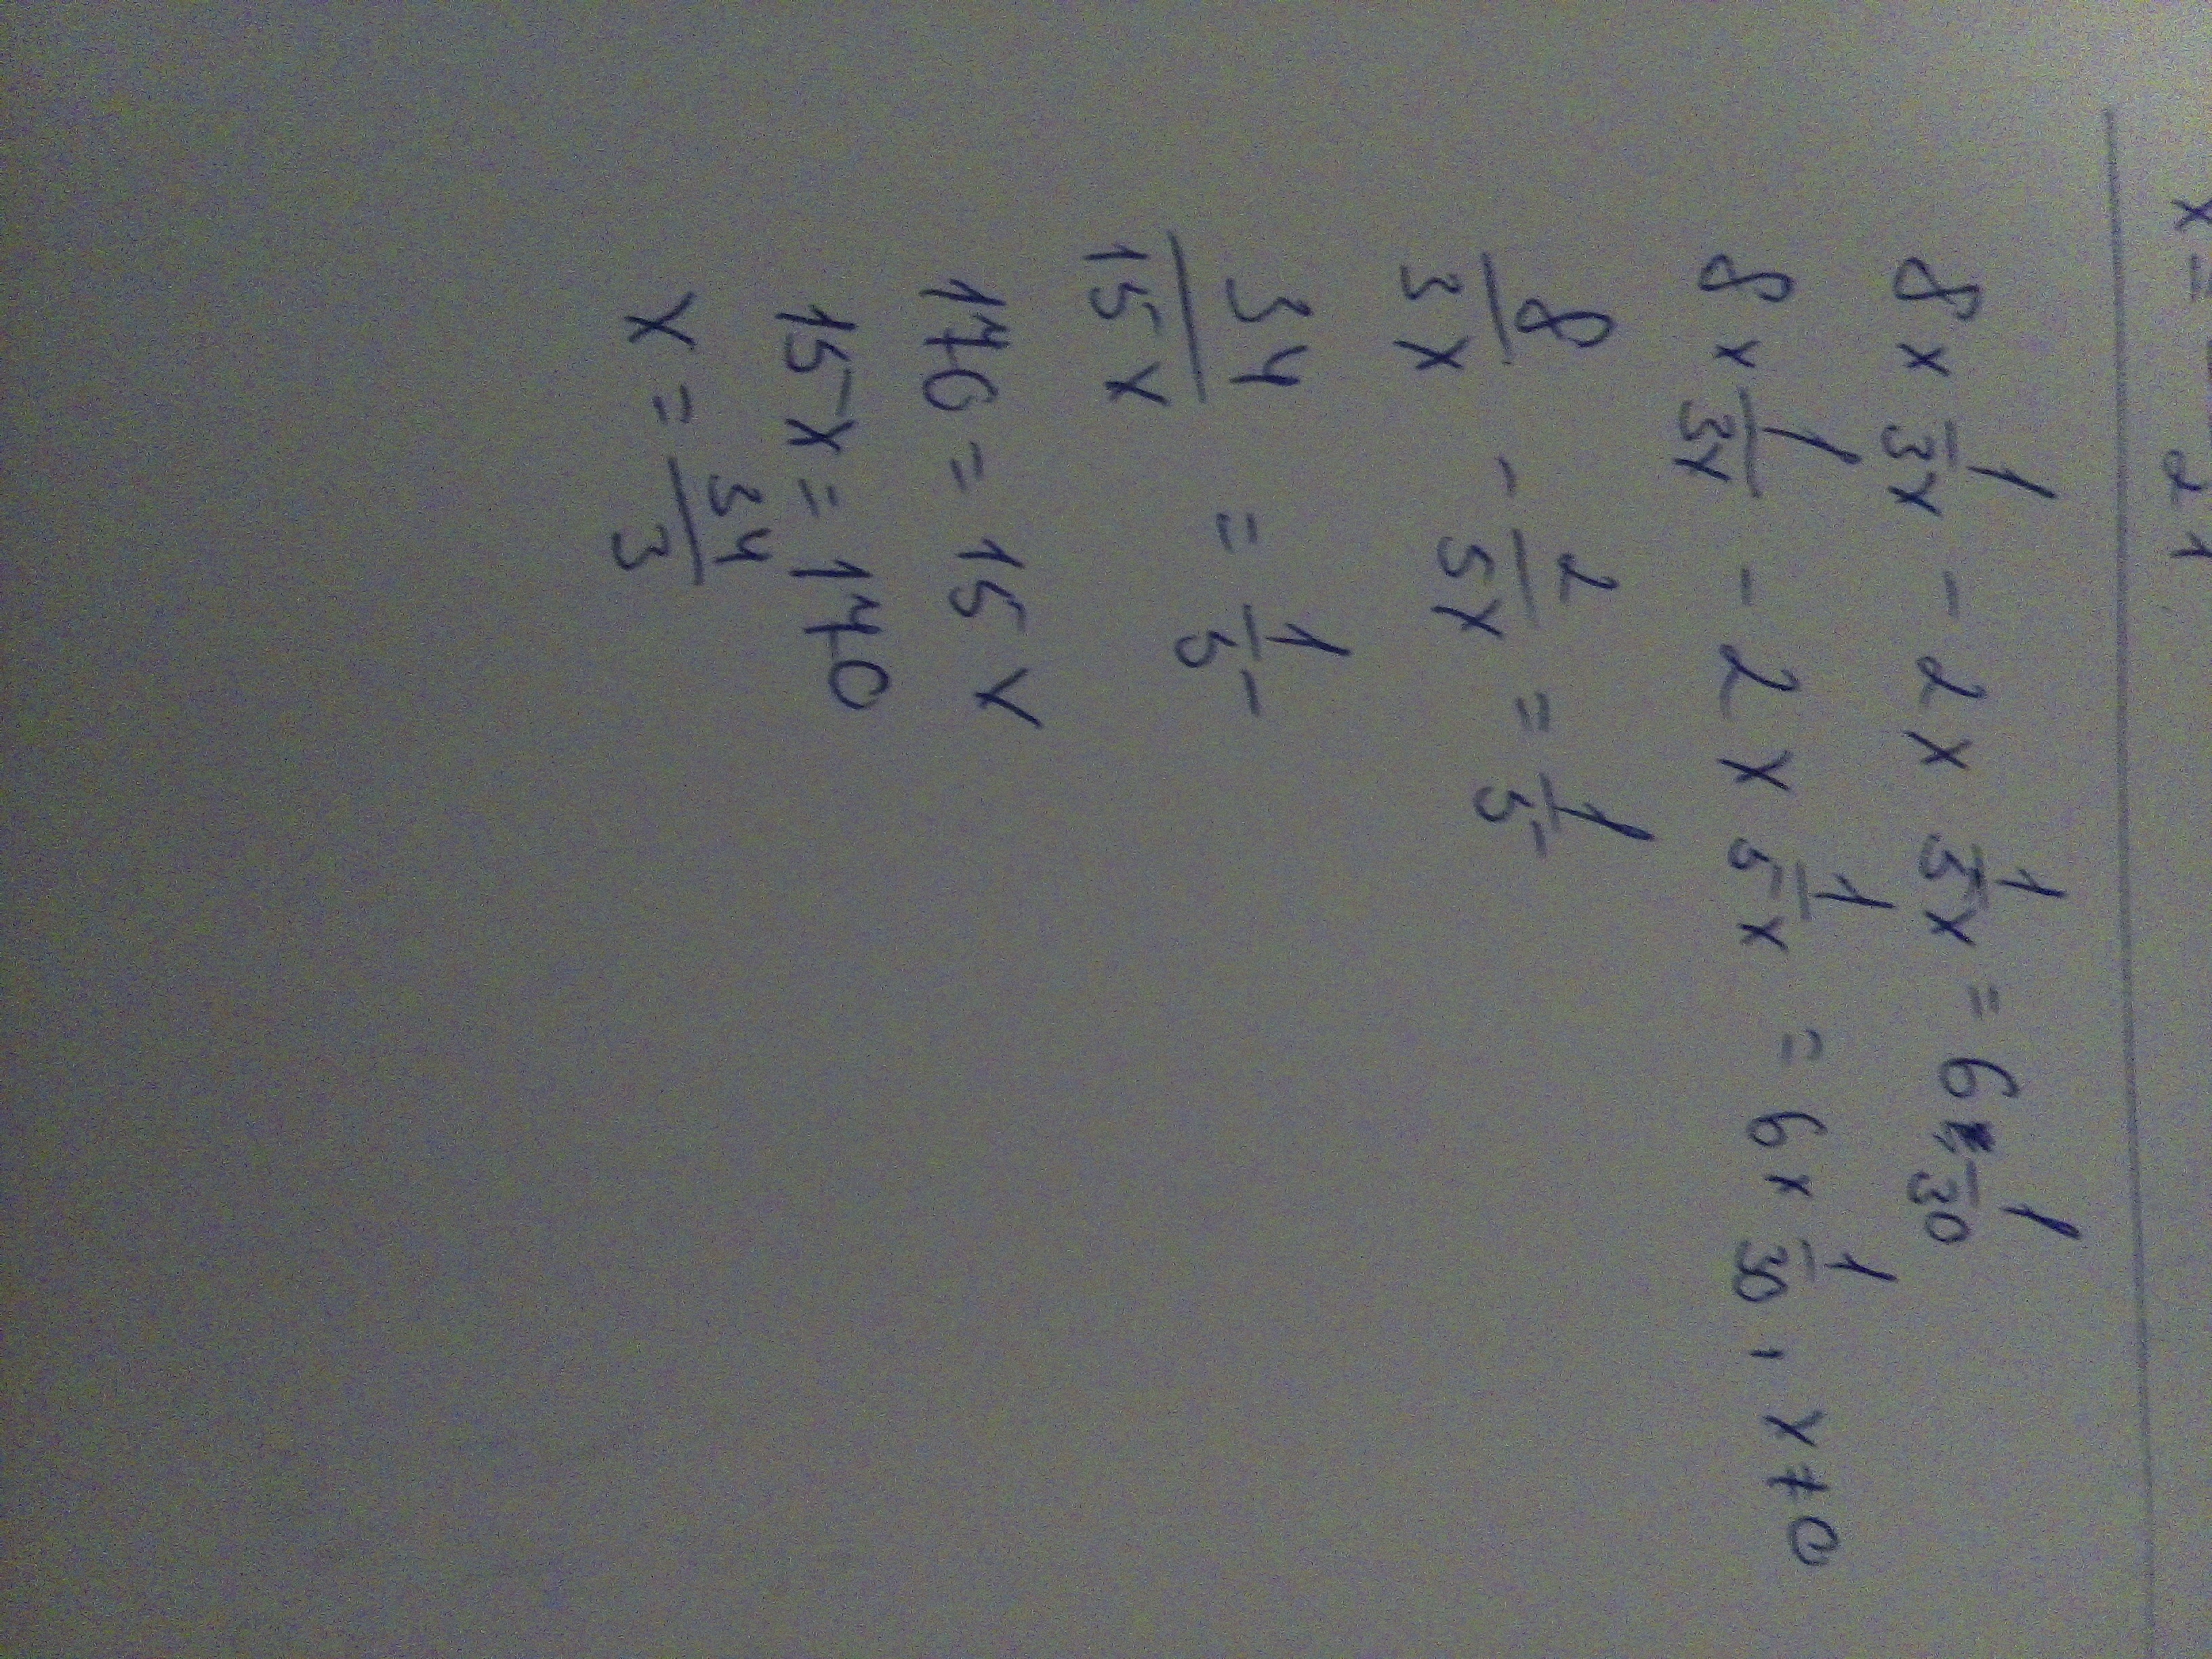 x =
2 1
8 x 1/3x - 2 x 1/5x = 6 x 1/30
8 x 1/3x - 2 x 1/5x = 6 x 1/30 , x ≠ 0
8/3x - 2/5x = 1/5
34/15x = 1/5
170 = 15x
15x = 170
x = 34/3